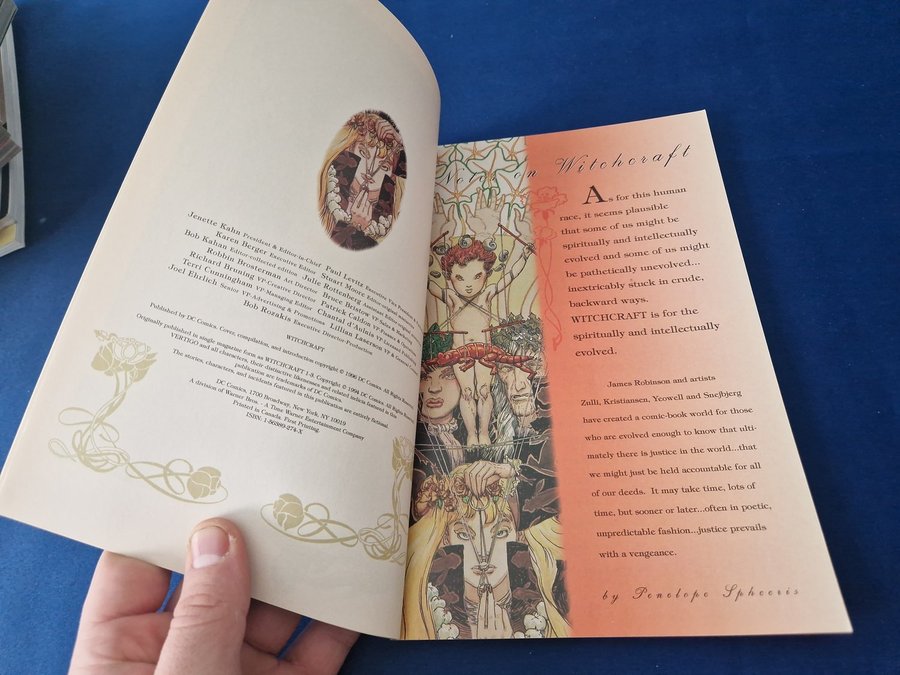 Jenette Kahn President & Editor-in-Chief Paul Levitz Executive Vice President &
Karen Berger Executive Editor Stuart Moore Editor-original
Bob Kahan Editor-collected edition Julie Rottenberg Assistant Editor-original
Robbin Brosterman Art Director Bruce Bristow VP-Sales & Marketing
Richard Bruning VP-Creative Director Patrick Caldon VP-Finance &
Terri Cunningham VP-Managing Editor Chantal d'Aulnis VP-Licensed
Joel Ehrlich Senior VP-Advertising & Promotions Lillian Laserson VP & General
Bob Rozakis Executive Director-Production
WITCHCRAFT
Published by DC Comics. Cover, compilation, and introduction copyright © 1996 DC Comics. All Rights
Originally published in single magazine form as WITCHCRAFT 1-3. Copyright © 1994 DC Comics. All Rights
VERTIGO and all characters, their distinctive likenesses and related indicia featured in this
publication are trademarks of DC Comics.
The stories, characters, and incidents featured in this publication are entirely fictional.
DC Comics, 1700 Broadway, New York, NY 10019
A division of Warner Bros. - A Time Warner Entertainment Company
Printed in Canada. First Printing.
ISBN: 1-56389-274-X
on Witchcraft
As for this human
race, it seems plausible
that some of us might be
spiritually and intellectually
evolved and some of us might
be pathetically unevolved...
inextricably stuck in crude,
backward ways.
WITCHCRAFT is for the
spiritually and intellectually
evolved.
James Robinson and artists
Zulli, Kristiansen, Yeowell and Snejbjerg
have created a comic-book world for those
who are evolved enough to know that ulti-
mately there is justice in the world...that
we might just be held accountable for all
of our deeds. It may take time, lots of
time, but sooner or later...often in poetic,
unpredictable fashion...justice prevails
with a vengeance.
by Penelope Spheeris